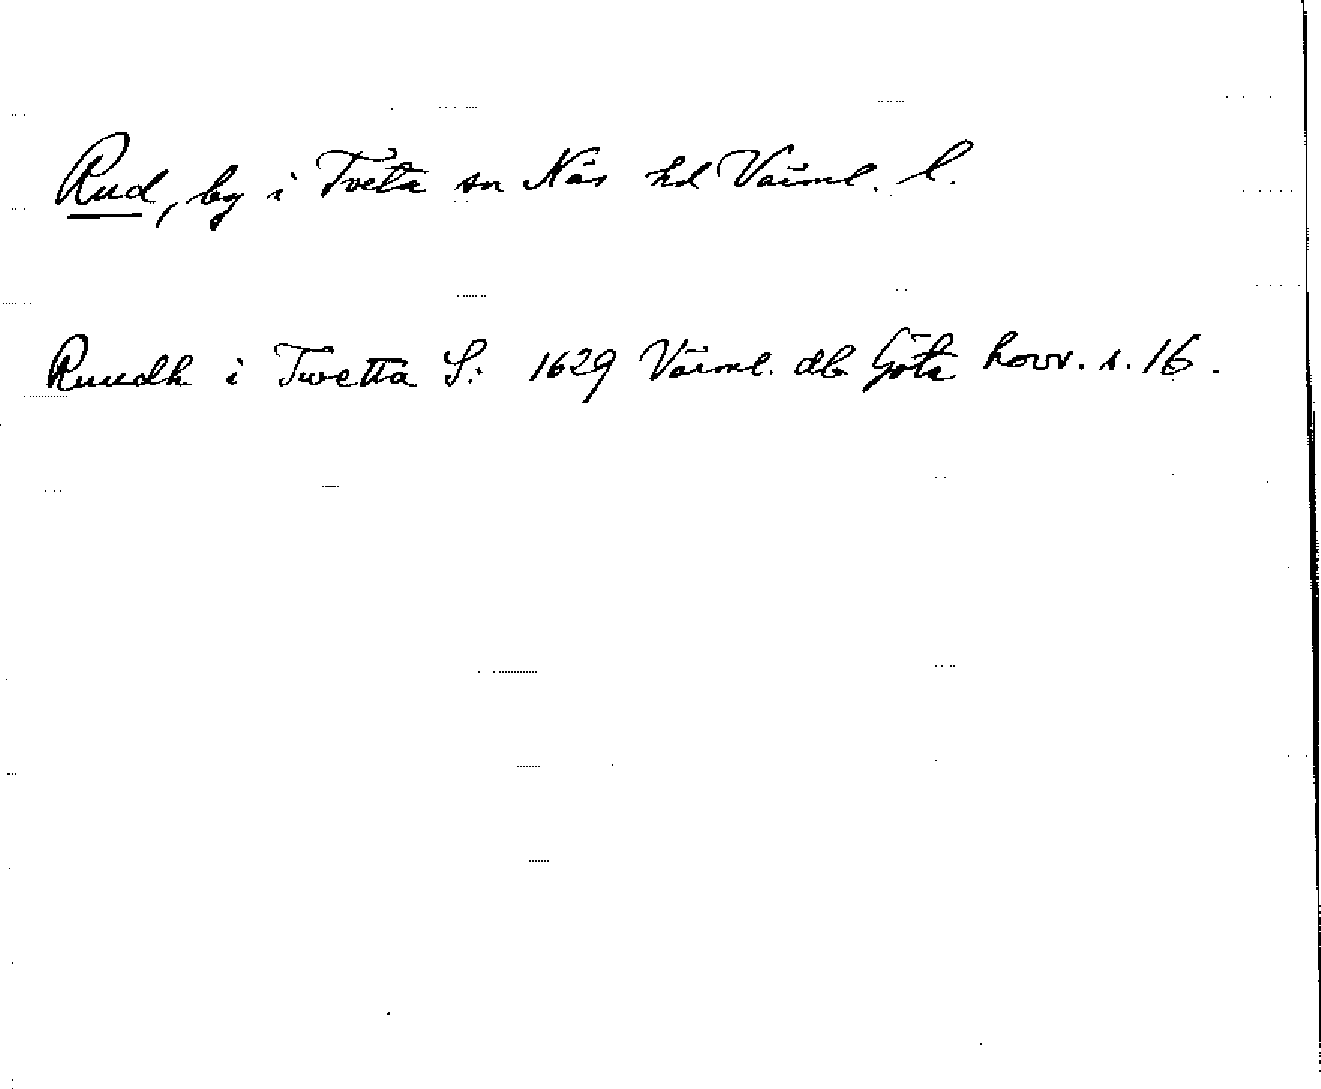 Rud, by i Tveta sn Näs hd Värml. l.
Ruudh i Twetta S: 1629 Värml. db Göta hovr. s. 16.